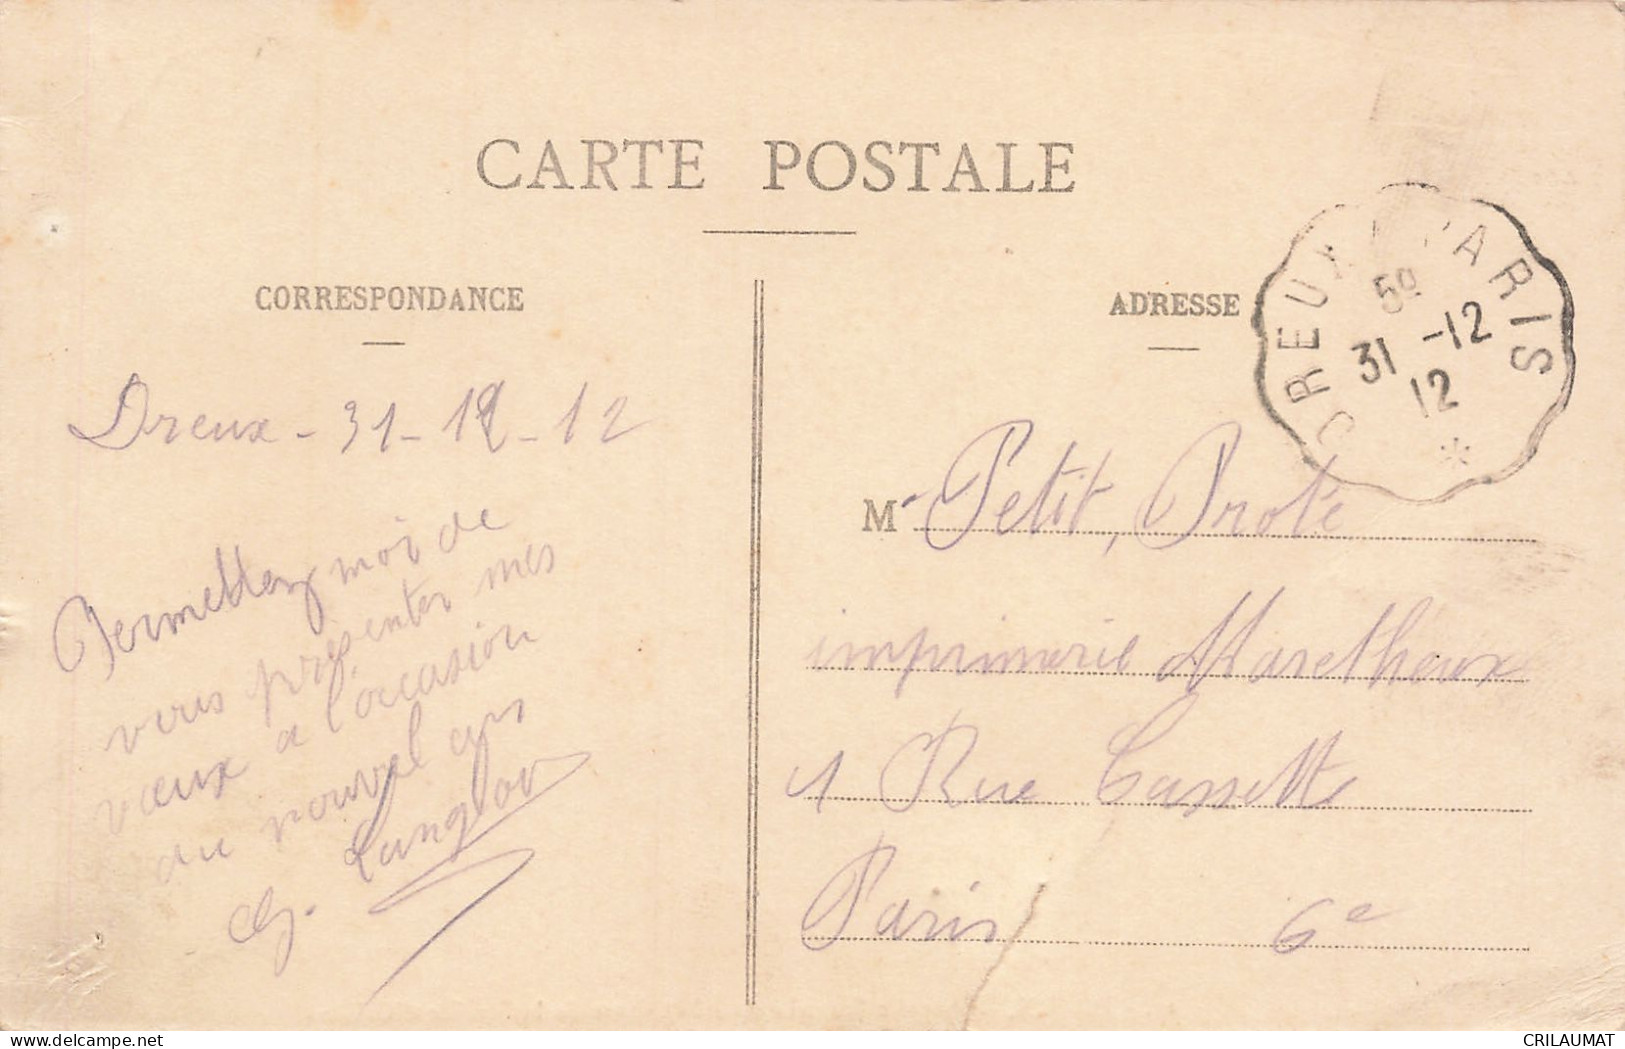 CARTE POSTALE
CORRESPONDANCE
Dreux - 31 - 12 - 12
Permettez moi de
vous présenter mes
vœux a l'occasion
du nouvel an
Langlois
ADRESSE
DREUX A PARIS
5º
31 -12
12
*
M r Petit, Prote
imprimerie Maretheux
1 Rue Cassette
Paris 6e
delcampe.net
CRILAUMAT